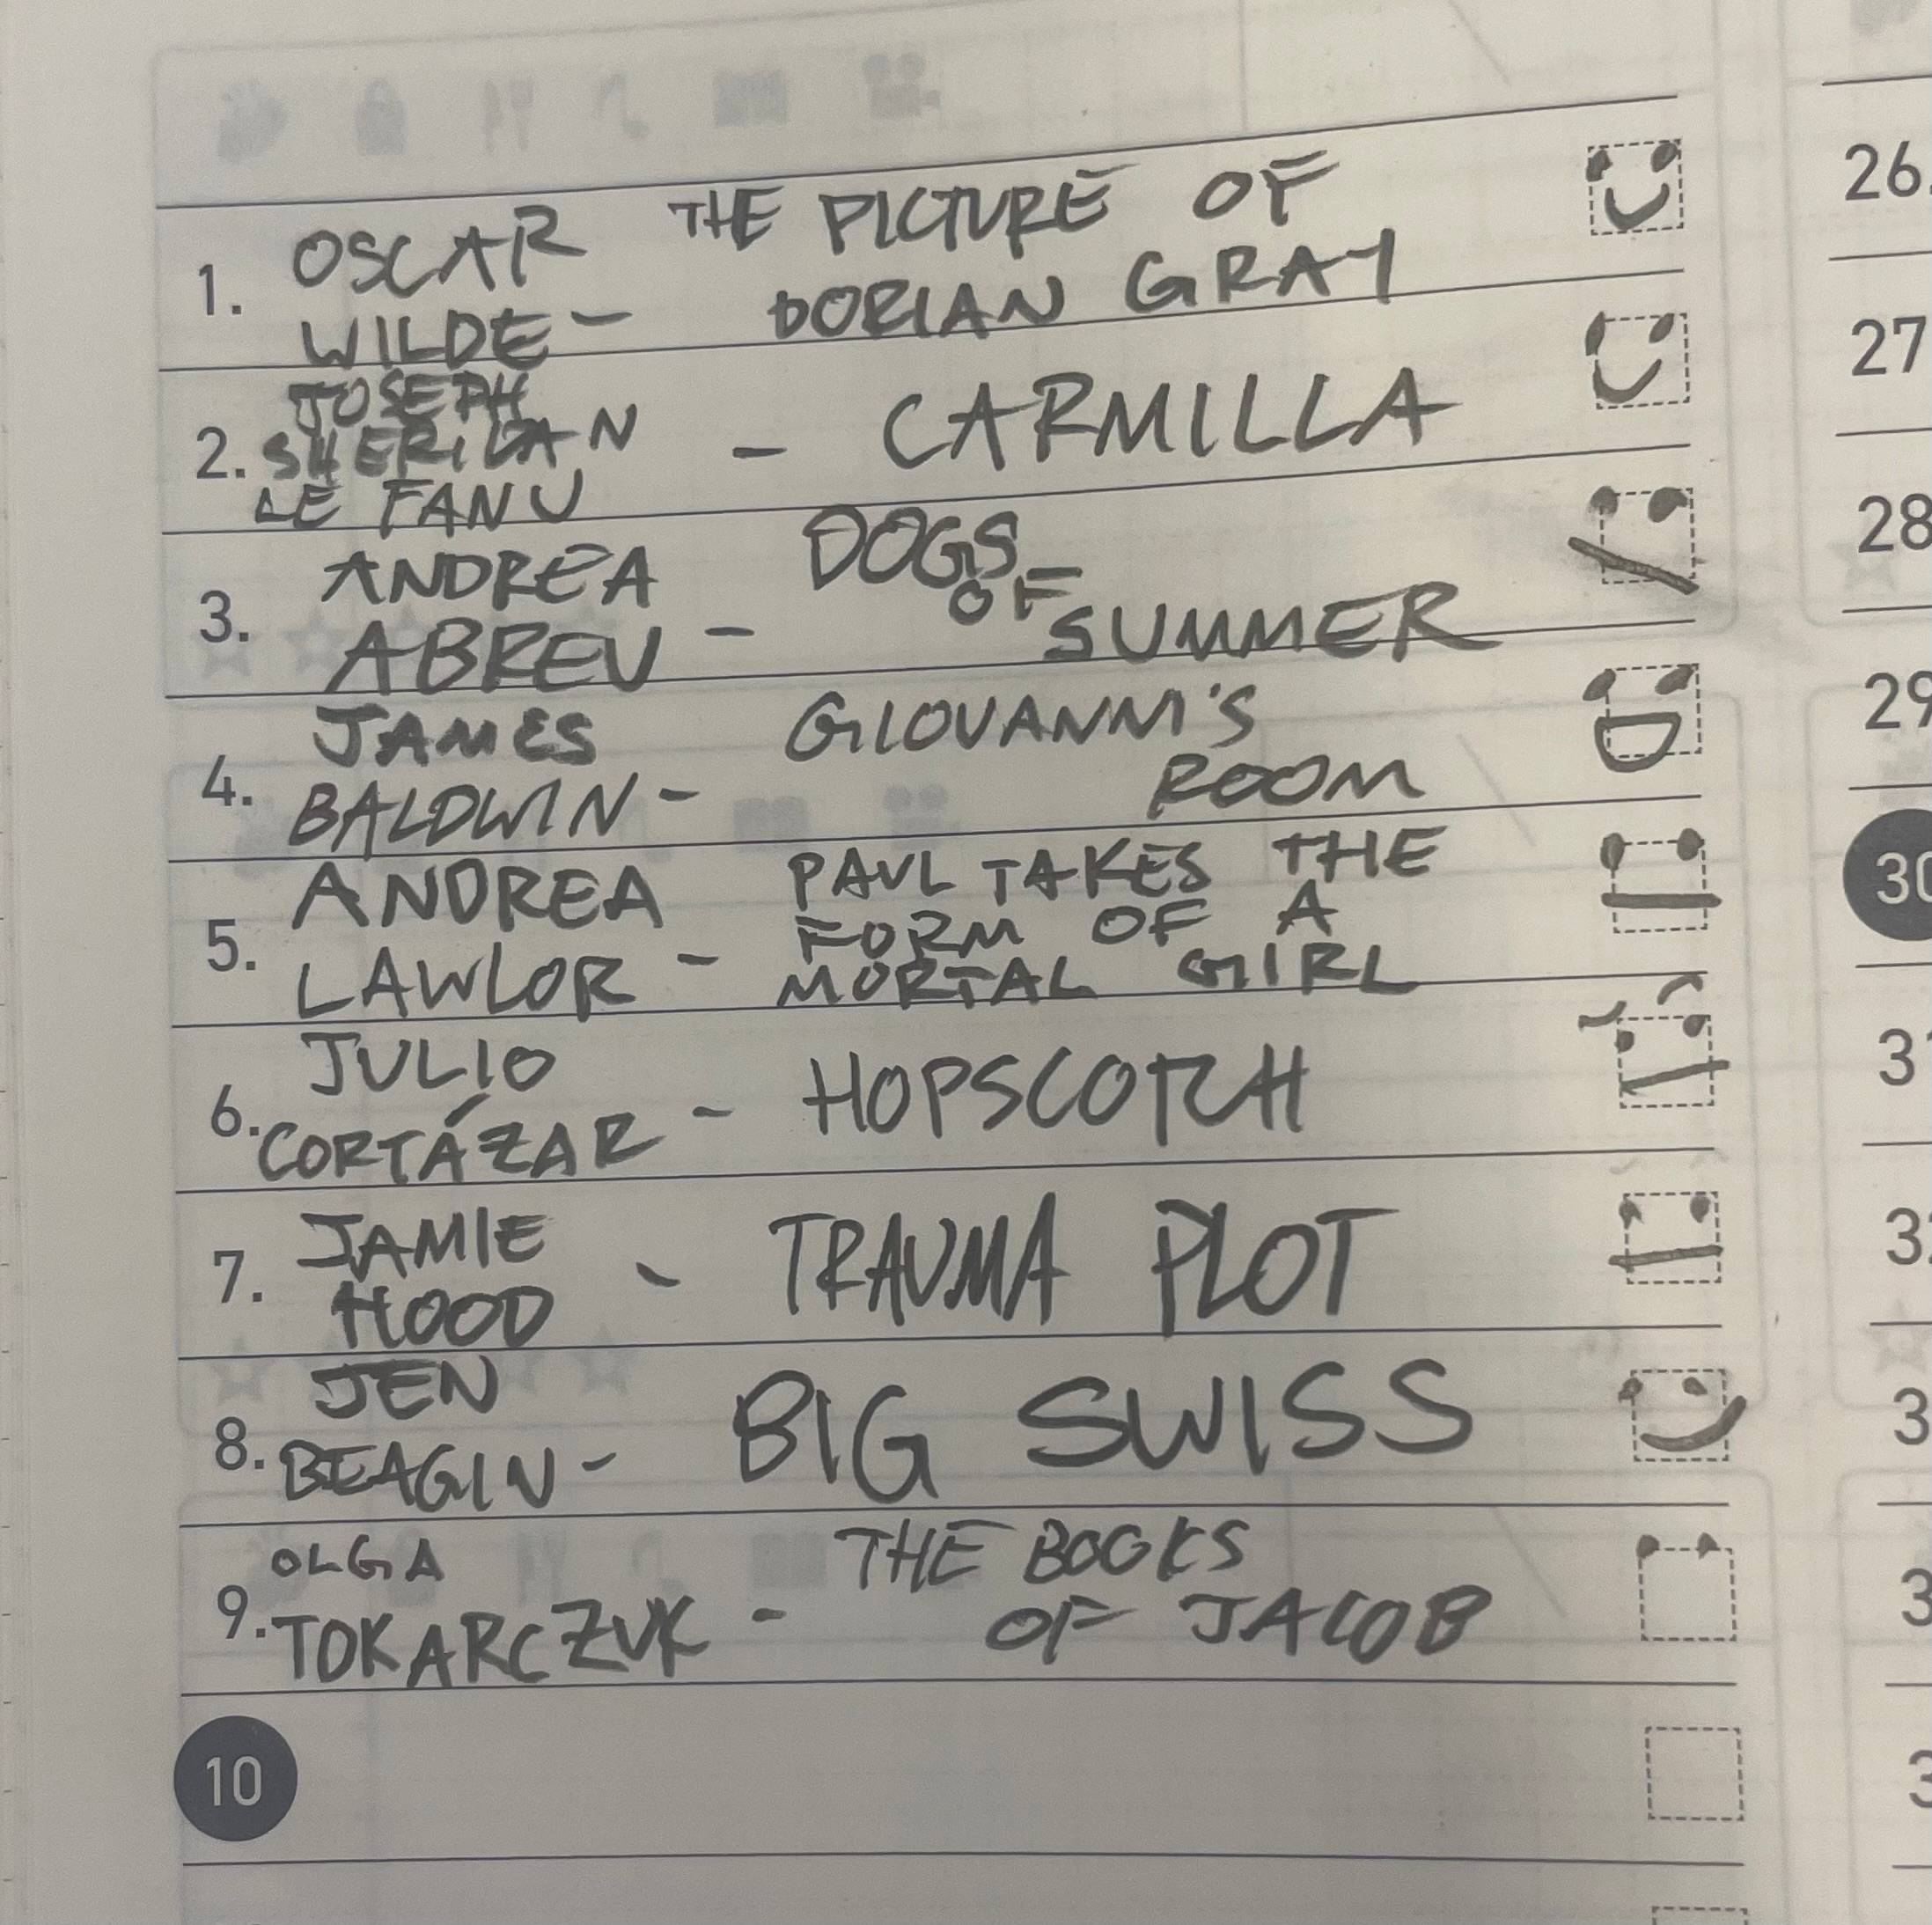 1. OSCAR WILDE - THE PICTURE OF DORIAN GRAY
2. JOSEPH SHERIDAN LE FANU - CARMILLA
3. ANDREA ABREU - DOGS OF SUMMER
4. JAMES BALDWIN - GIOVANNI'S ROOM
5. ANDREA LAWLOR - PAUL TAKES THE FORM OF A MORTAL GIRL
6. JULIO CORTÁZAR - HOPSCOTCH
7. JAMIE HOOD - TRAUMA PLOT
8. JEN BEAGIN - BIG SWISS
9. OLGA TOKARCZUK - THE BOOKS OF JACOB
10
26.
27
28
29
30